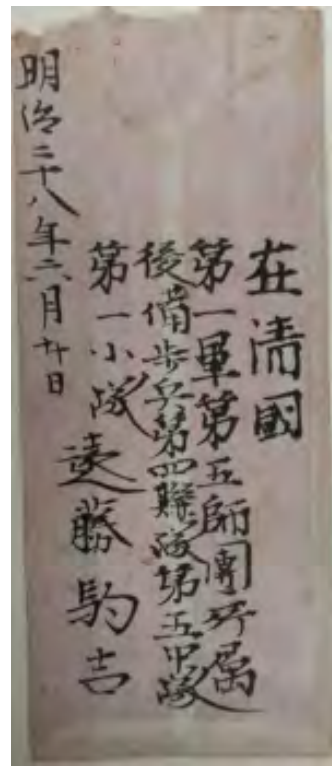 在清國
第一軍第五師團所属
後備歩兵第四聯隊第五中隊
第一小隊
遠藤駒吉
明治二十八年六月廿日